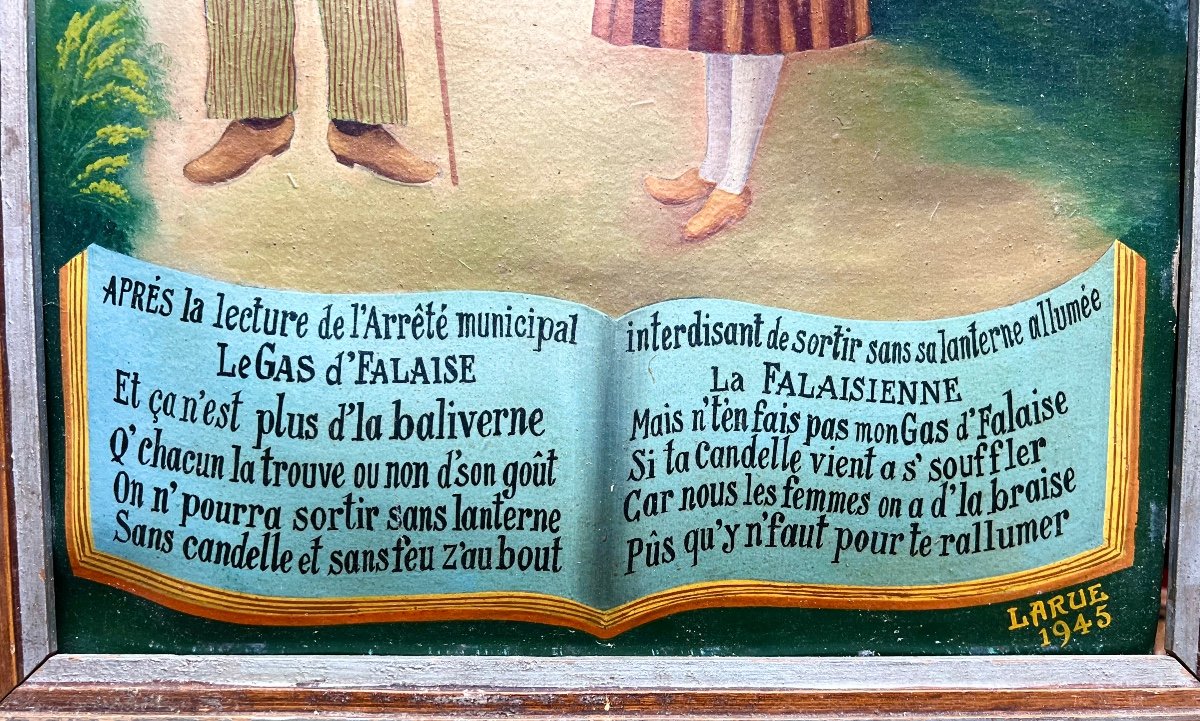 APRÉS la lecture de l'Arrêté municipal
Le GAS d'FALAISE
Et ça n'est plus d'la baliverne
Q' chacun la trouve ou non d'son goût
On n' pourra sortir sans lanterne
Sans candelle et sans feu z'au bout
interdisant de sortir sans sa lanterne allumée
La FALAISIENNE
Mais n't'en fais pas mon Gas d'Falaise
Si ta candelle vient a s' souffler
Car nous les femmes on a d'la braise
Pûs qu'y n'faut pour te rallumer
LARUE
1945